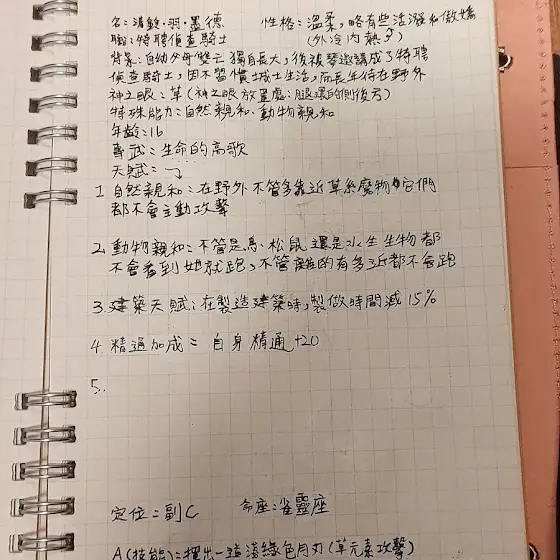 名:清鈴·羽·墨德 性格:溫柔,略有些活潑和傲嬌
職:特聘偵查騎士 (外冷內熱多)
背景:自幼父母雙亡 獨自長大,後被琴邀請成了特聘
偵查騎士,因不習慣城土生活,而長年待在野外
神之眼:草(神之眼放置處:腿環的側後方)
特殊能力:自然親和、動物親和
年齡:16
專武:生命的高歌
天賦:
1 自然親和:在野外不管多靠近草系魔物 它們
都不會主動攻擊
2. 動物親和:不管是鳥、松鼠 還是水生生物都
不會看到她就跑,不管離的有多近都不會跑
3. 建築天賦:在製造建築時,製做時間減15%
4. 精通加成:自身精通+20
5.
定位:副C 命座:雀靈座
A(技能):揮出一道淺綠色月刃(草元素攻擊)